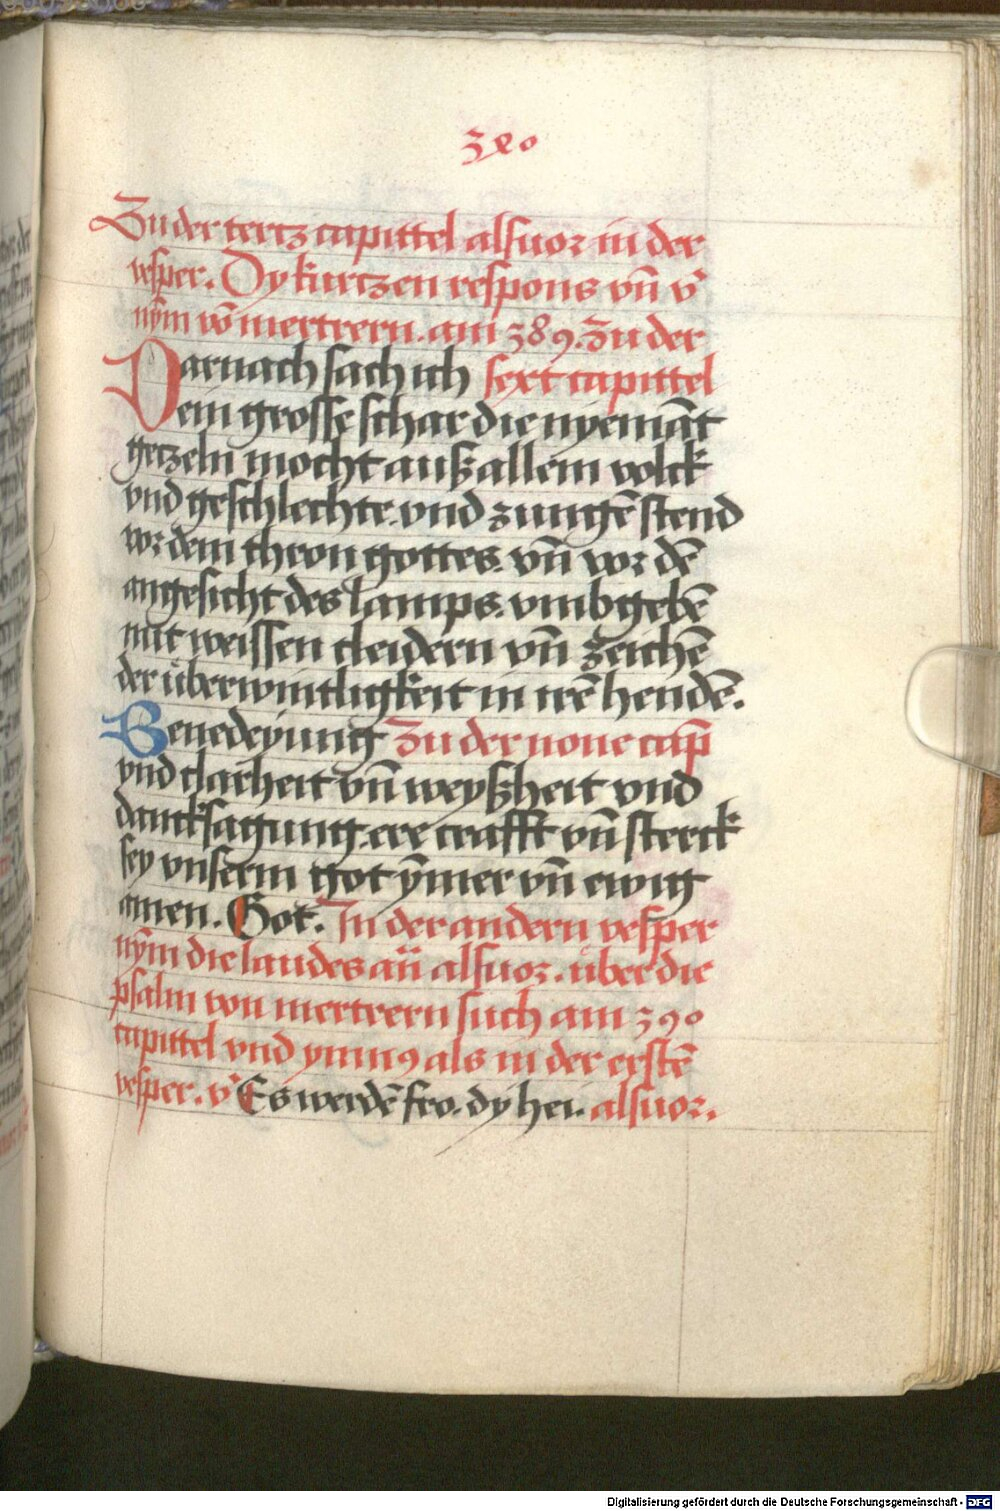 3𝔩0
Zu der tertz capittel alsuor in der
vesper. Dy kurtzen respons vn̄ v̓
nym vō mertrern. am 389. Zu der
Darnach sach ich sext capittel
ein grosse schar die nyemāt
getzeln mocht auß allem volck
vnd geschlechte. vnd zungē stend
vor dem thron gottes. vn̄ vor dē
angesicht des lamps. vmbgebē
mit weissen cleidern vn̄ zeichē
der überwintligkeit in irē hendē.
Benedeyung Zu der none cap̄
vnd clarheit vn̄ weyßheit vnd
dancksagung. ere crafft vn̄ sterck
sey vnserm got ȳmer vn̄ ewig
amen. Got. In der andern vesper
nym die laudes an̄ alsuor. über die
psalm von mertrern such am 390
capittel vnd ymnꝰ als in der erstē
vesper. v̓ Es werdē fro. dy hei. alsuor.
Digitalisierung gefördert durch die Deutsche Forschungsgemeinschaft - DFG